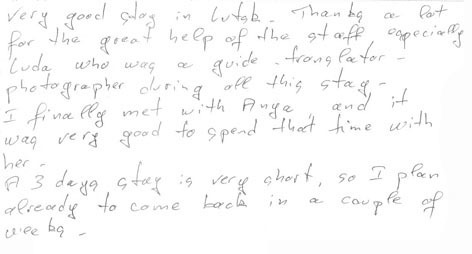 very good stay in Lutsk. Thanks a lot
for the great help of the staff especially
Luda who was a guide-translator-
photographer during all this stay-
I finally met with Anya, and it
was very good to spend that time with
her-
A 3 days stay is very short, so I plan
already to come back in a couple of
weeks-